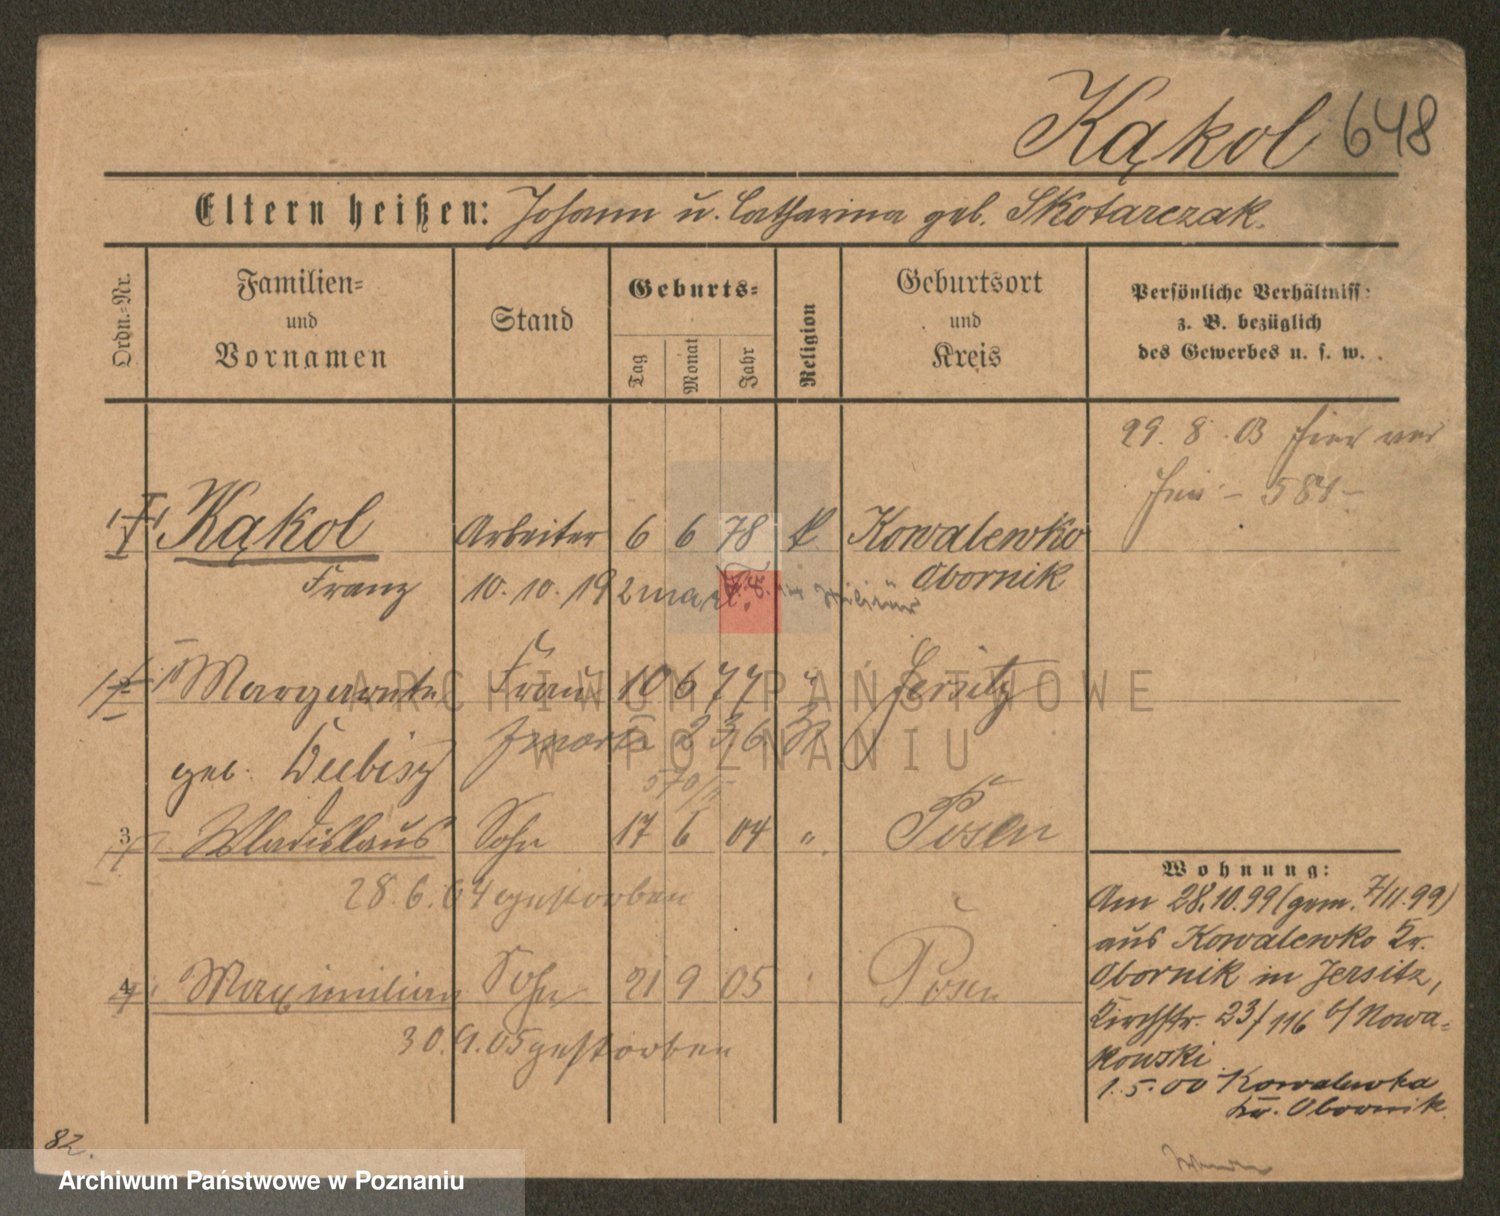 Kąkol 648
Eltern heißen: Johann u. Catharina geb. Skotarczak.
Ordn.-Nr.
Familien-
und
Vornamen
Stand
Geburts-
Tag
Monat
Jahr
Religion
Geburtsort
und
Kreis
Persönliche Verhältniss
z. B. bezüglich
des Gewerbes u. s. w.
29. 8. 03 hier
581
1 Kąkol Arbeiter 6 6 78 k Kowalewko
Franz Obornik
10. 10. 19
2 Margarete Frau 10 6 77 " Jersitz
geb. Kubisz
3 Wladislaus Sohn 17 6 04 " Posen
28. 6. 04 gestorben
4 Maximilian Sohn 21 9 05 Posen
30. 9. 05 gestorben
Wohnung:
Am 28.10.99 (gem. 7/11.99)
aus Kowalewko Kr.
Obornik in Jersitz,
Kirchstr. 23/116 b/Nowa-
kowski
1. 5. 00 Kowalewko
Kr. Obornik
82.
ARCHIWUM PAŃSTWOWE
W POZNANIU
Archiwum Państwowe w Poznaniu